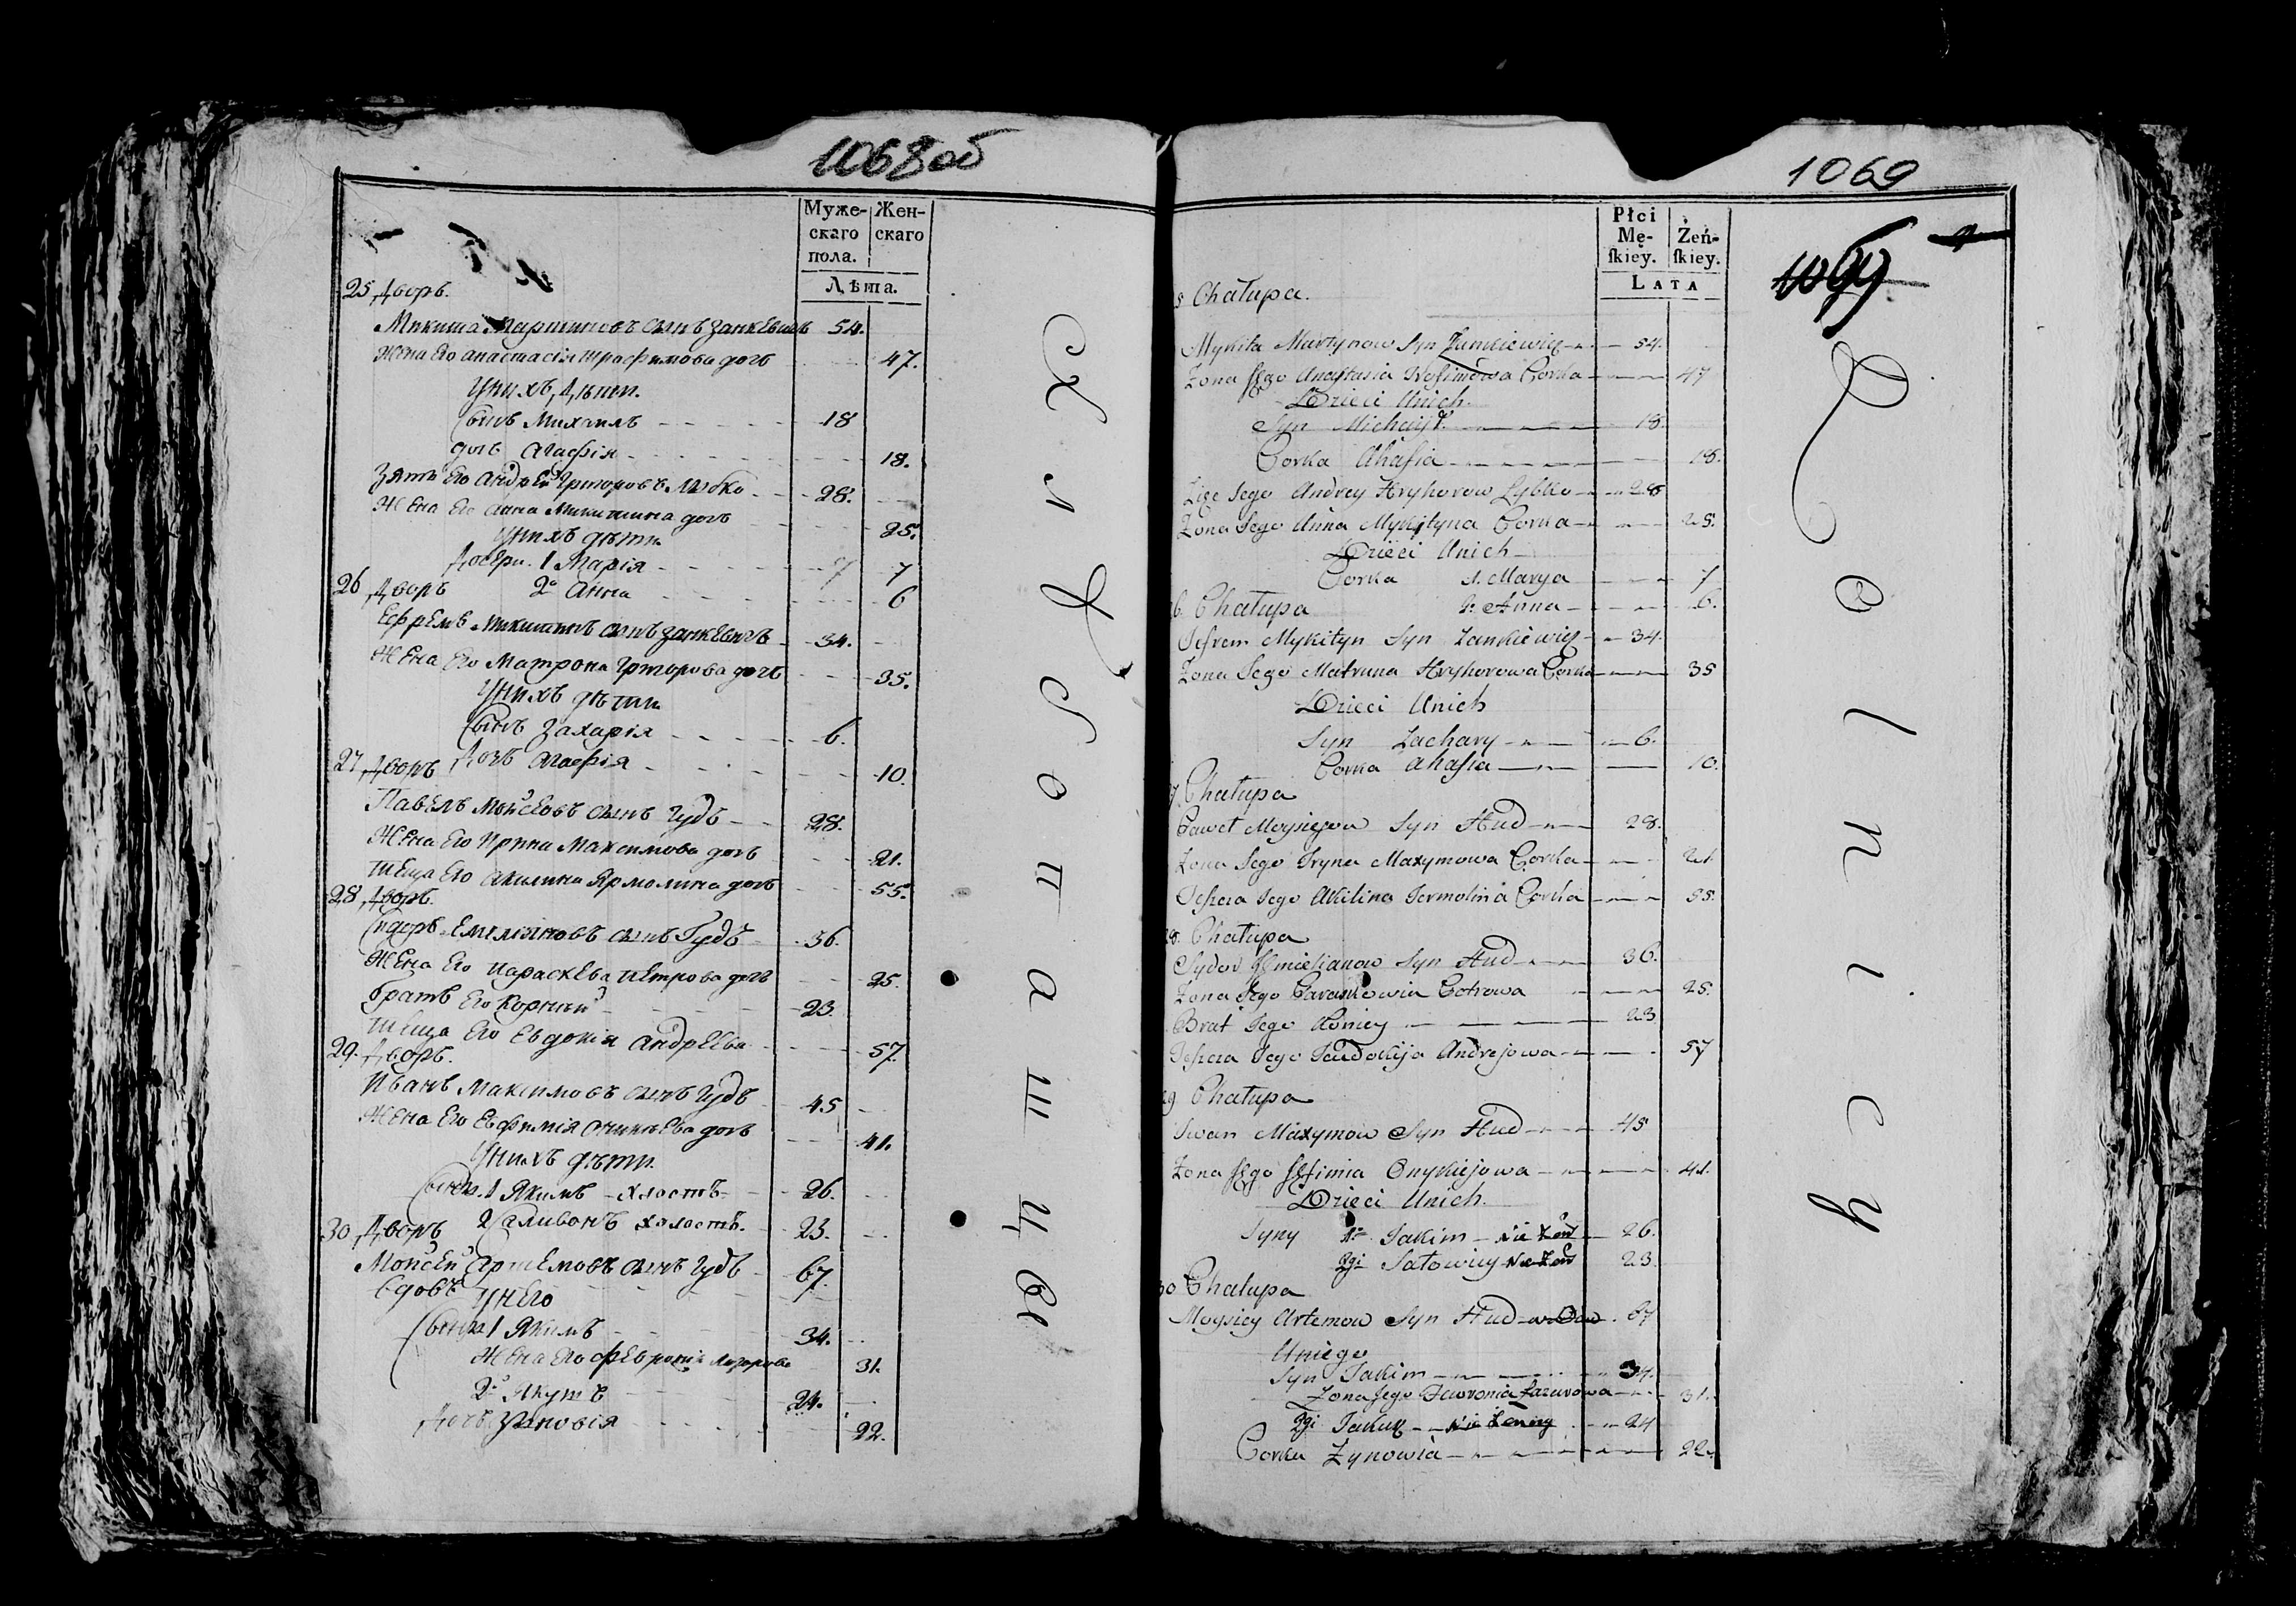 1068об
Муже-
скаго
пола.
Жен-
скаго
Лѣта.
25 Дворъ.
Микита Мартиновъ сынъ Занкевичъ 54.
Жена Его Анастасія Трофимова дочь 47.
У нихъ Дѣти.
Сынъ Михаилъ 18
дочь Агафія 18.
Зять Его Андрей Григоровъ Любко 28.
Жена Его Анна Микитина дочь 25.
У нихъ дѣти
Дочери. 1 Марія 7 7
26 Дворъ 2я Анна 6
Ефремъ Микитинъ сынъ Занкевичъ 34.
Жена Его Матрона Григорова дочь 35.
У нихъ дѣти
Сынъ Захарія 6.
27 Дворъ Дочь Агафія 10.
Павелъ Мойсеовъ сынъ Гудъ 28.
Жена Его Ирина Максимова дочь 21.
Теща Его Акилина Ярмолина дочь 55.
28 Дворъ.
Сидоръ Емеліяновъ сынъ Гудъ 36.
Жена Его Параскева Петрова дочь 25.
Братъ Его Корнѣй 23.
Теща Его Евдокія Андреева 57.
29. Дворъ.
Иванъ Максимовъ сынъ Гудъ 45
Жена Его Евфимія Оникѣева дочь 41.
У нихъ дѣти.
Сыны. 1 Якимъ - холостъ 26.
30 Дворъ 2 Саливонъ холостъ. 23.
Мойсей Артемовъ сынъ Гудъ 67.
вдовъ У него
Сыны 1 Якимъ 34.
Жена Его Февронія Лазарова 31.
2й Якутъ 24.
Дочь Зѣновія 22.
Хлѣбопашцы
1069
Płci
Mę-
skiey.
Żeń-
skiey.
LATA
1069
Chałupa.
Mykita Martynow Syn Zankiewicz 54.
Zona Jego Anastasia Trofimowa Corka 47
Dzieci Unich.
Syn Michaył 18.
Corka Ahafia 18.
Zięc Jego Andrey Hryhorow Lybko 28
Zona Jego Anna Mykityna Corka 25.
Dzieci Unich
Corka 1. Marya 7
6 Chałupa 2. Anna 6.
Jefrem Mykityn Syn Zankiewicz 34.
Zona Jego Matruna Hryhorowa Corka 35
Dzieci Unich
Syn Zachary 6.
Corka Ahafia 10.
7 Chałupa
Paweł Moysiejow Syn Hud 28.
Zona Jego Iryna Maxymowa Corka 21
Teszcza Jego Akilina Jermolina Corka 55.
8. Chałupa
Sydor Jemielianow Syn Hud 36.
Zona Jego Paraskowia Petrowa 25.
Brat Jego Korniey 23
Teszcza Jego Jewdokija Andrejowa 57
29 Chałupa
Iwan Maxymow Syn Hud 45
Zona Jego Jefimia Onykiejowa 41.
Dzieci Unich.
Syny 1. Jakim - Nie Żon 26.
2gi Saływon Nie Żon 23.
30 Chałupa
Moysiey Artemow Syn Hud wdow. 67
Uniego
Syn Jakim 34.
Zona Jego Fewronia Łazarowa 31.
2gi Jakut Nie Żeniny 24
Corka Zynowia 22.
Rolnicy